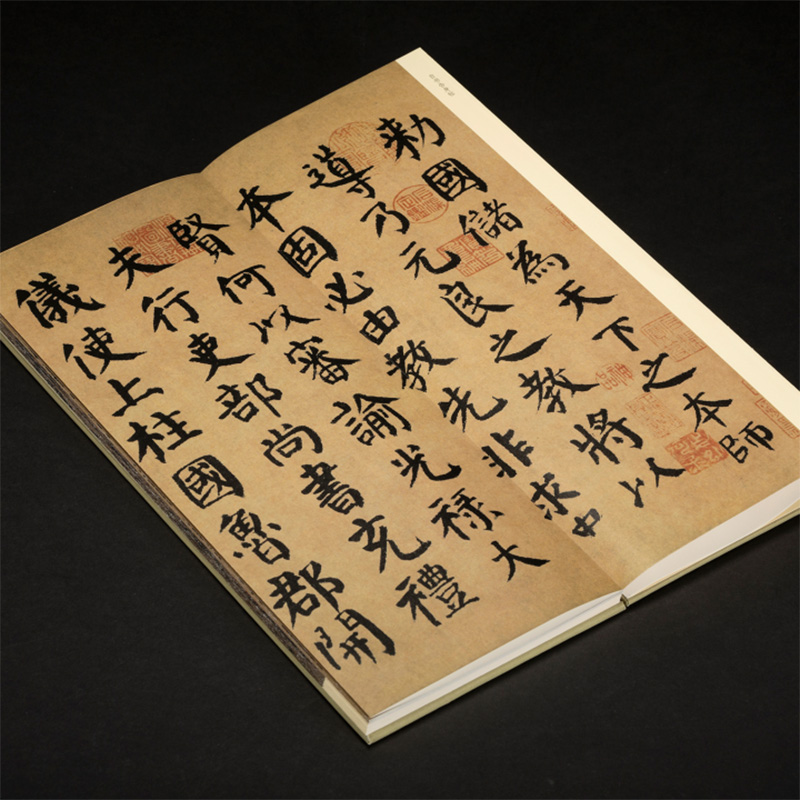 勅國儲為天下之本師
導乃元良之教將以
本固必由教先非求中
賢何以審諭光祿大
夫行吏部尚書充禮
儀使上柱國魯郡開